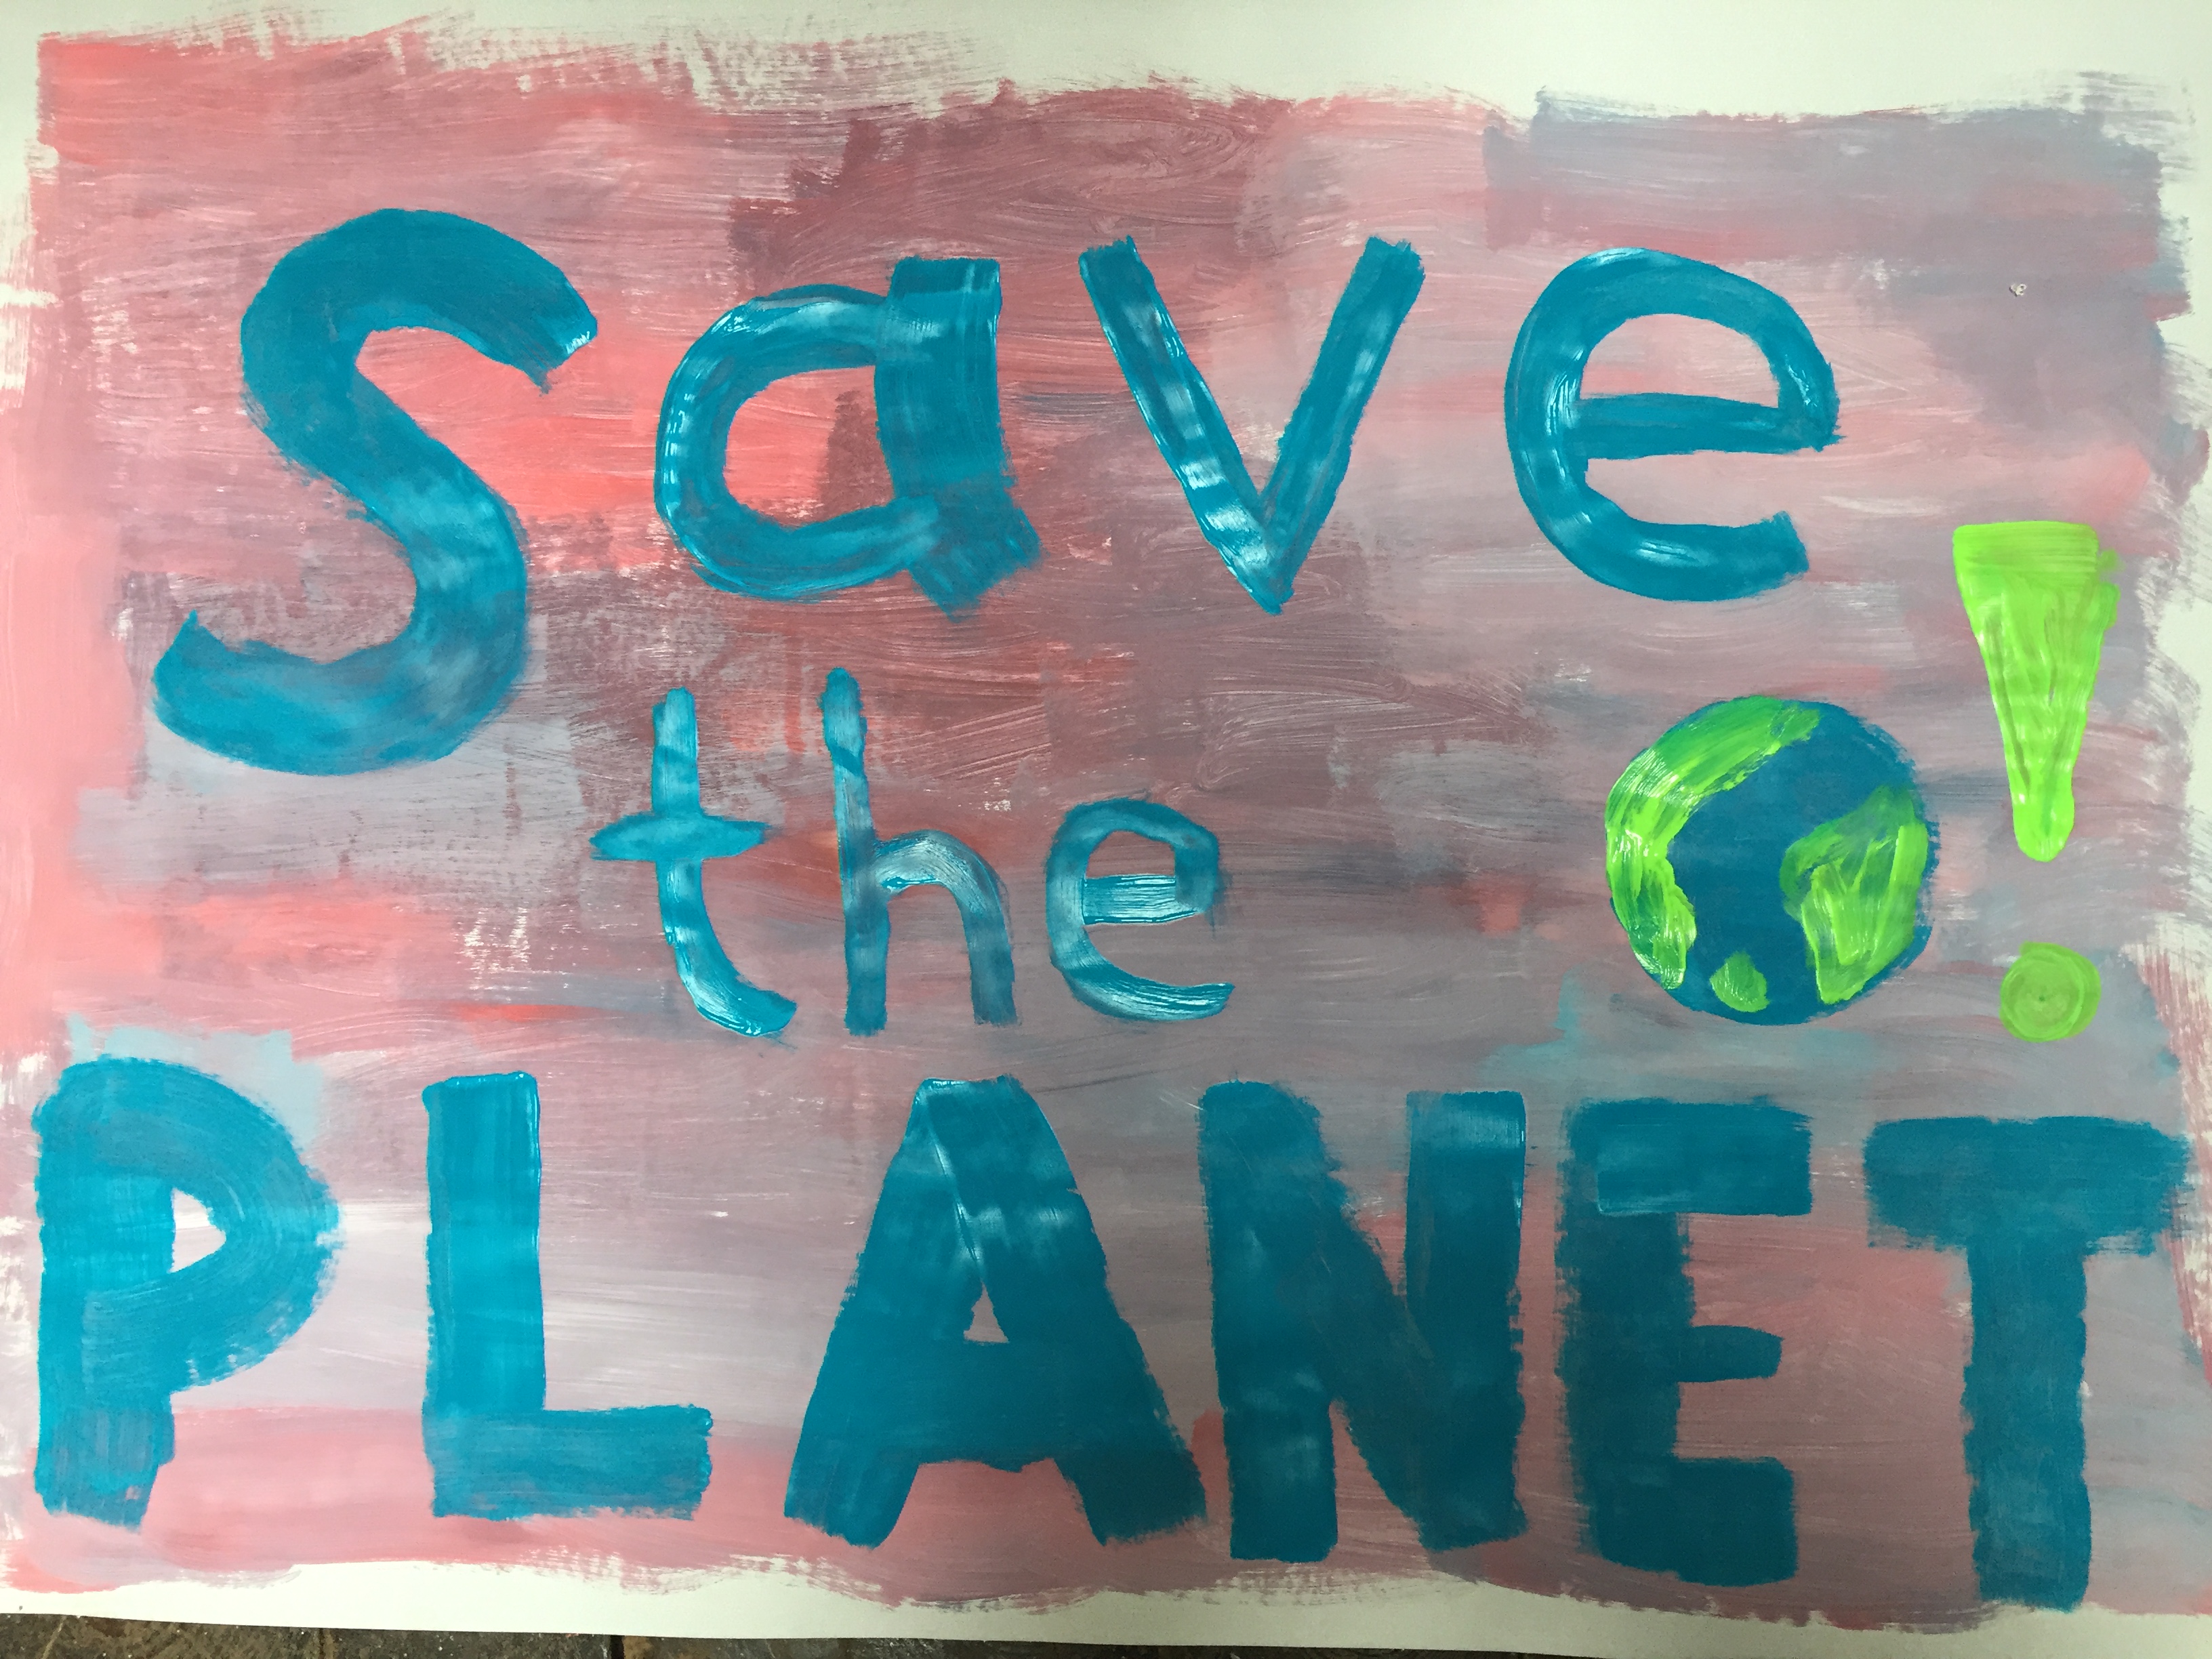 Save
the !
PLANET